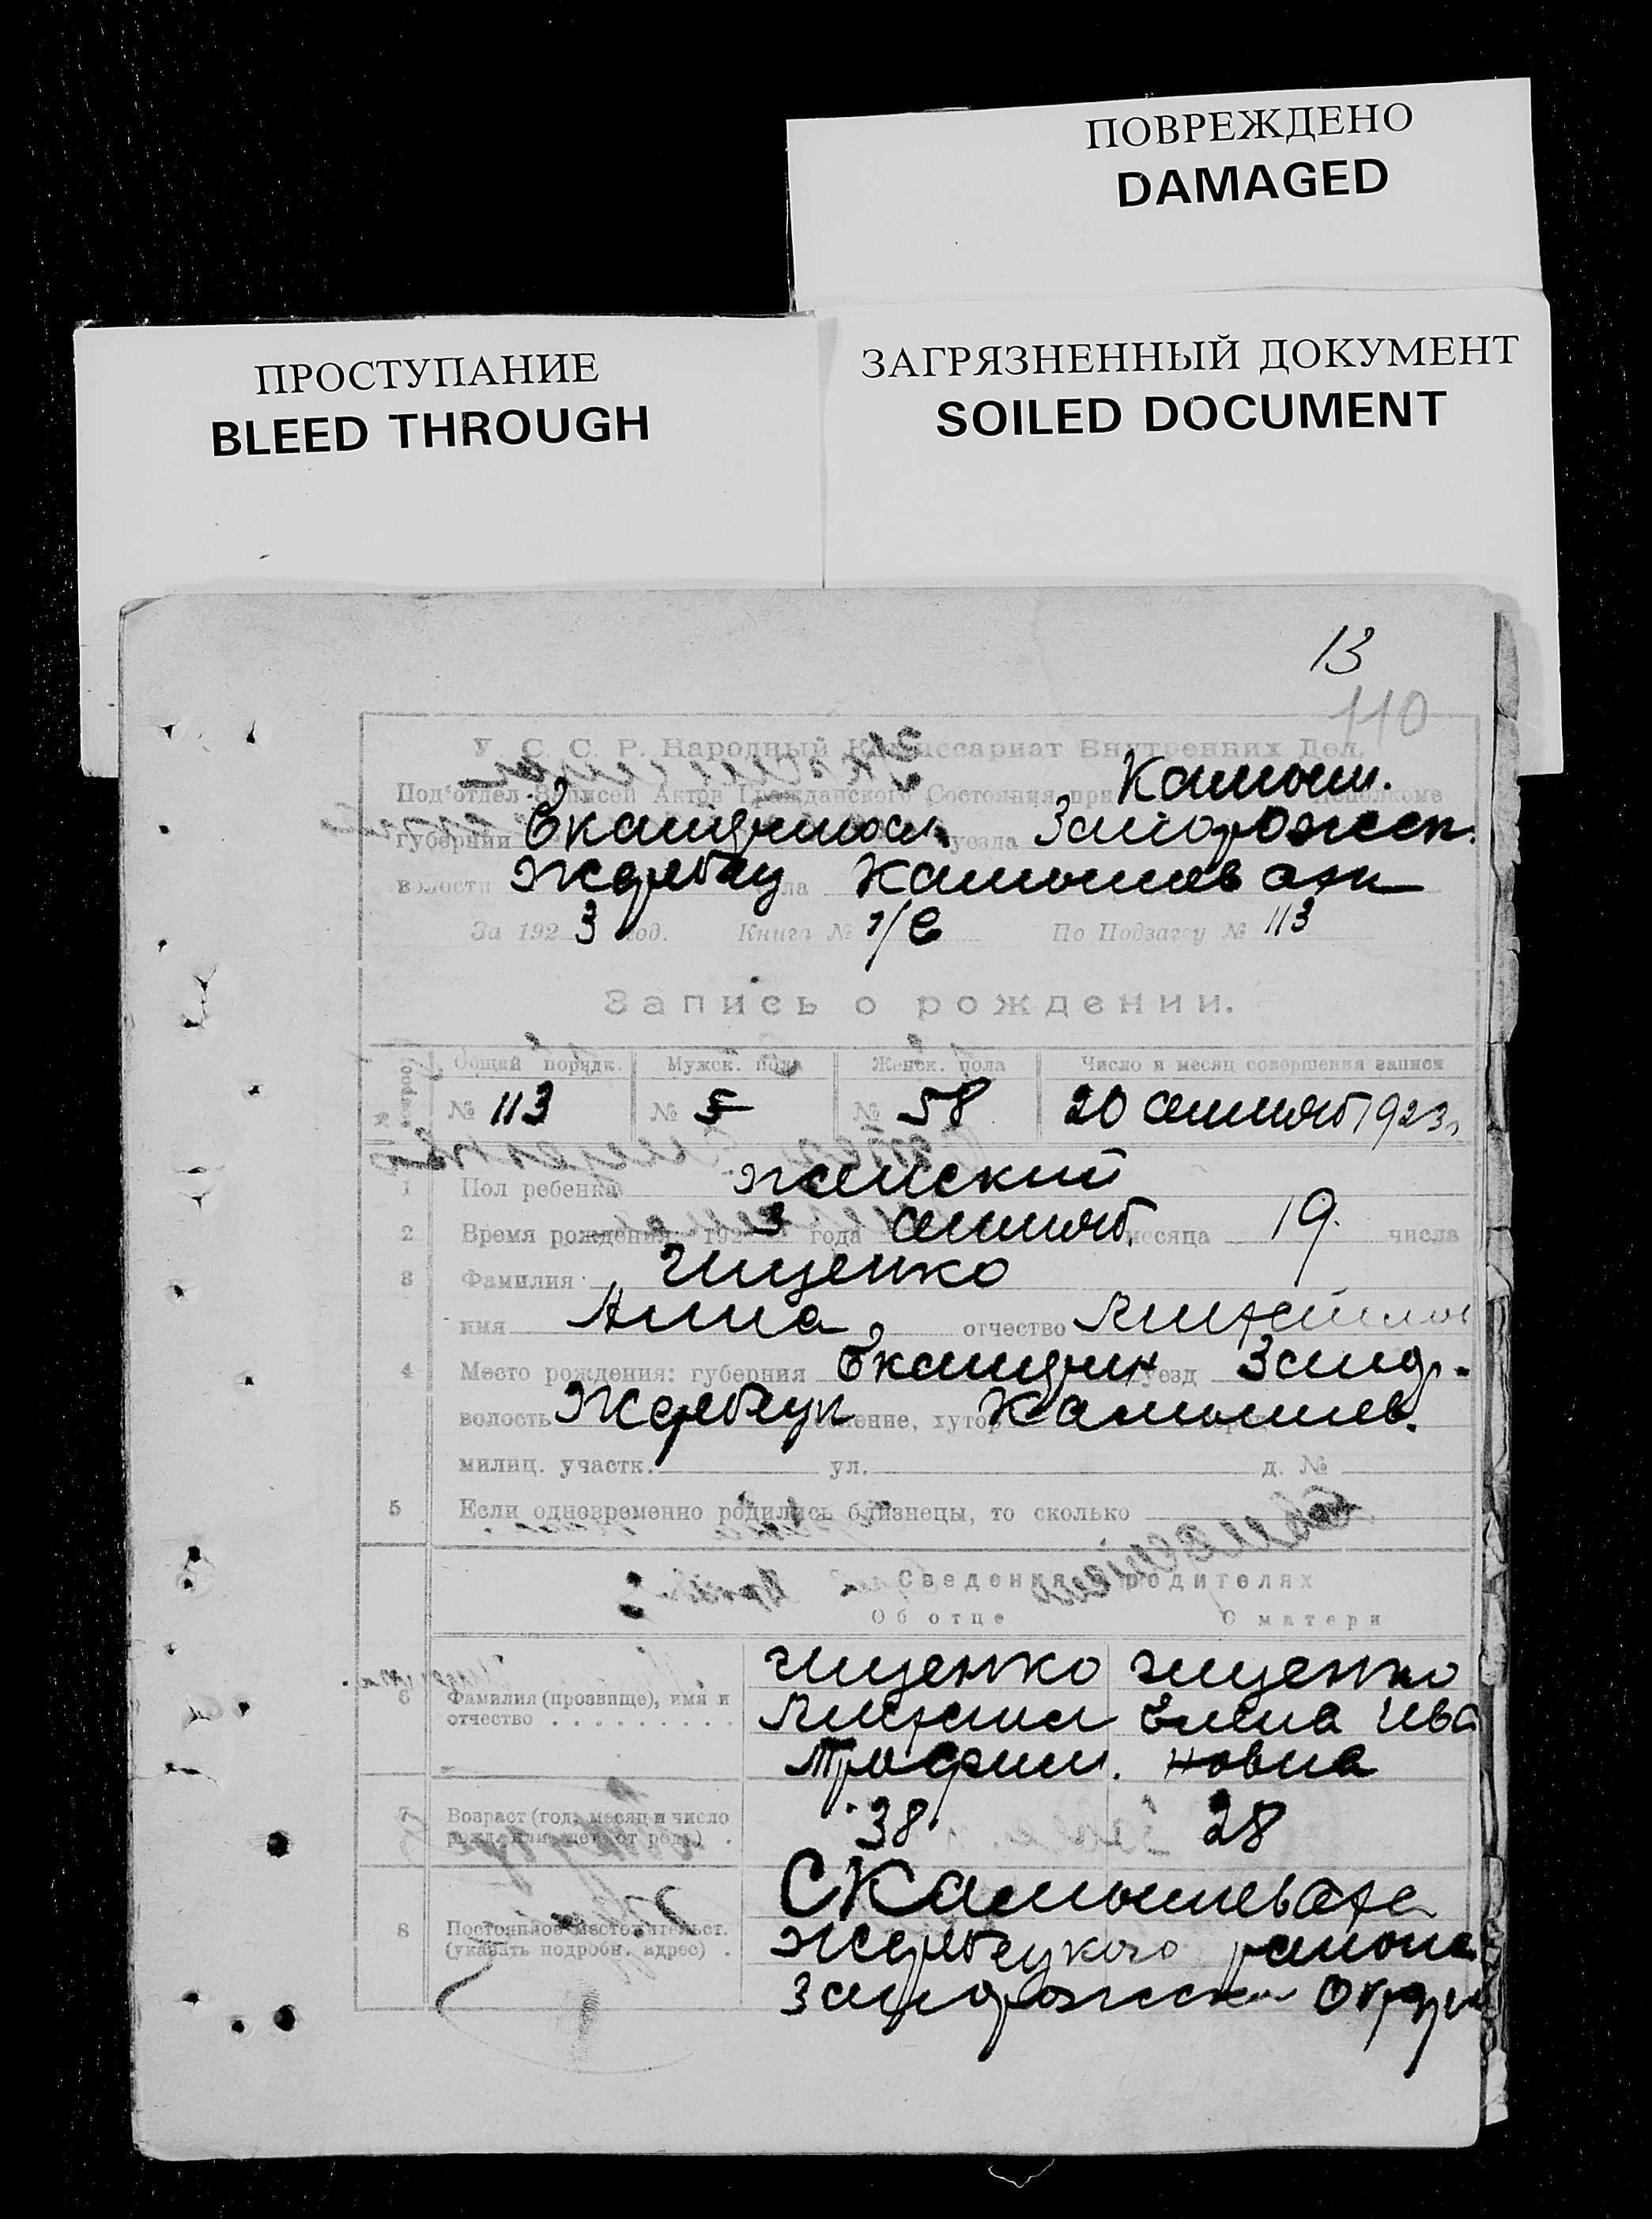 ПОВРЕЖДЕНО
DAMAGED
ПРОСТУПАНИЕ
BLEED THROUGH
ЗАГРЯЗНЕННЫЙ ДОКУМЕНТ
SOILED DOCUMENT
13
110
У. С. С. Р. Народный Комиссариат Внутренних Дел.
Под'отдел Записей Актов Гражданского Состояния при Камыш. Исполкоме
губернии Екатериносл. уезда Запорожск.
волости Жеребец Камышевахи
За 1923 год. Книга № 1/6 По Подзагсу № 113
Запись о рождении.
Общий порядк. Мужск. пола Женск. пола Число и месяц совершения записи
№ 113 № № 58 20 сентяб 1923 г
1 Пол ребенка женский
2 Время рождения: 1923 года сентяб. месяца 19 числа
3 Фамилия Гищенко
имя Анна отчество Михайлов
4 Место рождения: губерния Екатерин уезд Запор.
волость Жеребецк селение, хутор Камышев.
милиц. участк. ул. д. №
5 Если одновременно родились близнецы, то сколько
Сведения о родителях
Об отце О матери
6 Фамилия (прозвище), имя и отчество Гищенко Гищенко
Михаил Елена Ива
Трофим. новна
7 Возраст (год, месяц и число рожд. или лет от роду) 38 28
8 Постоянное местожительст. (указать подробн. адрес) С Камышеваха
Жеребецкого района
Запорожск Округи